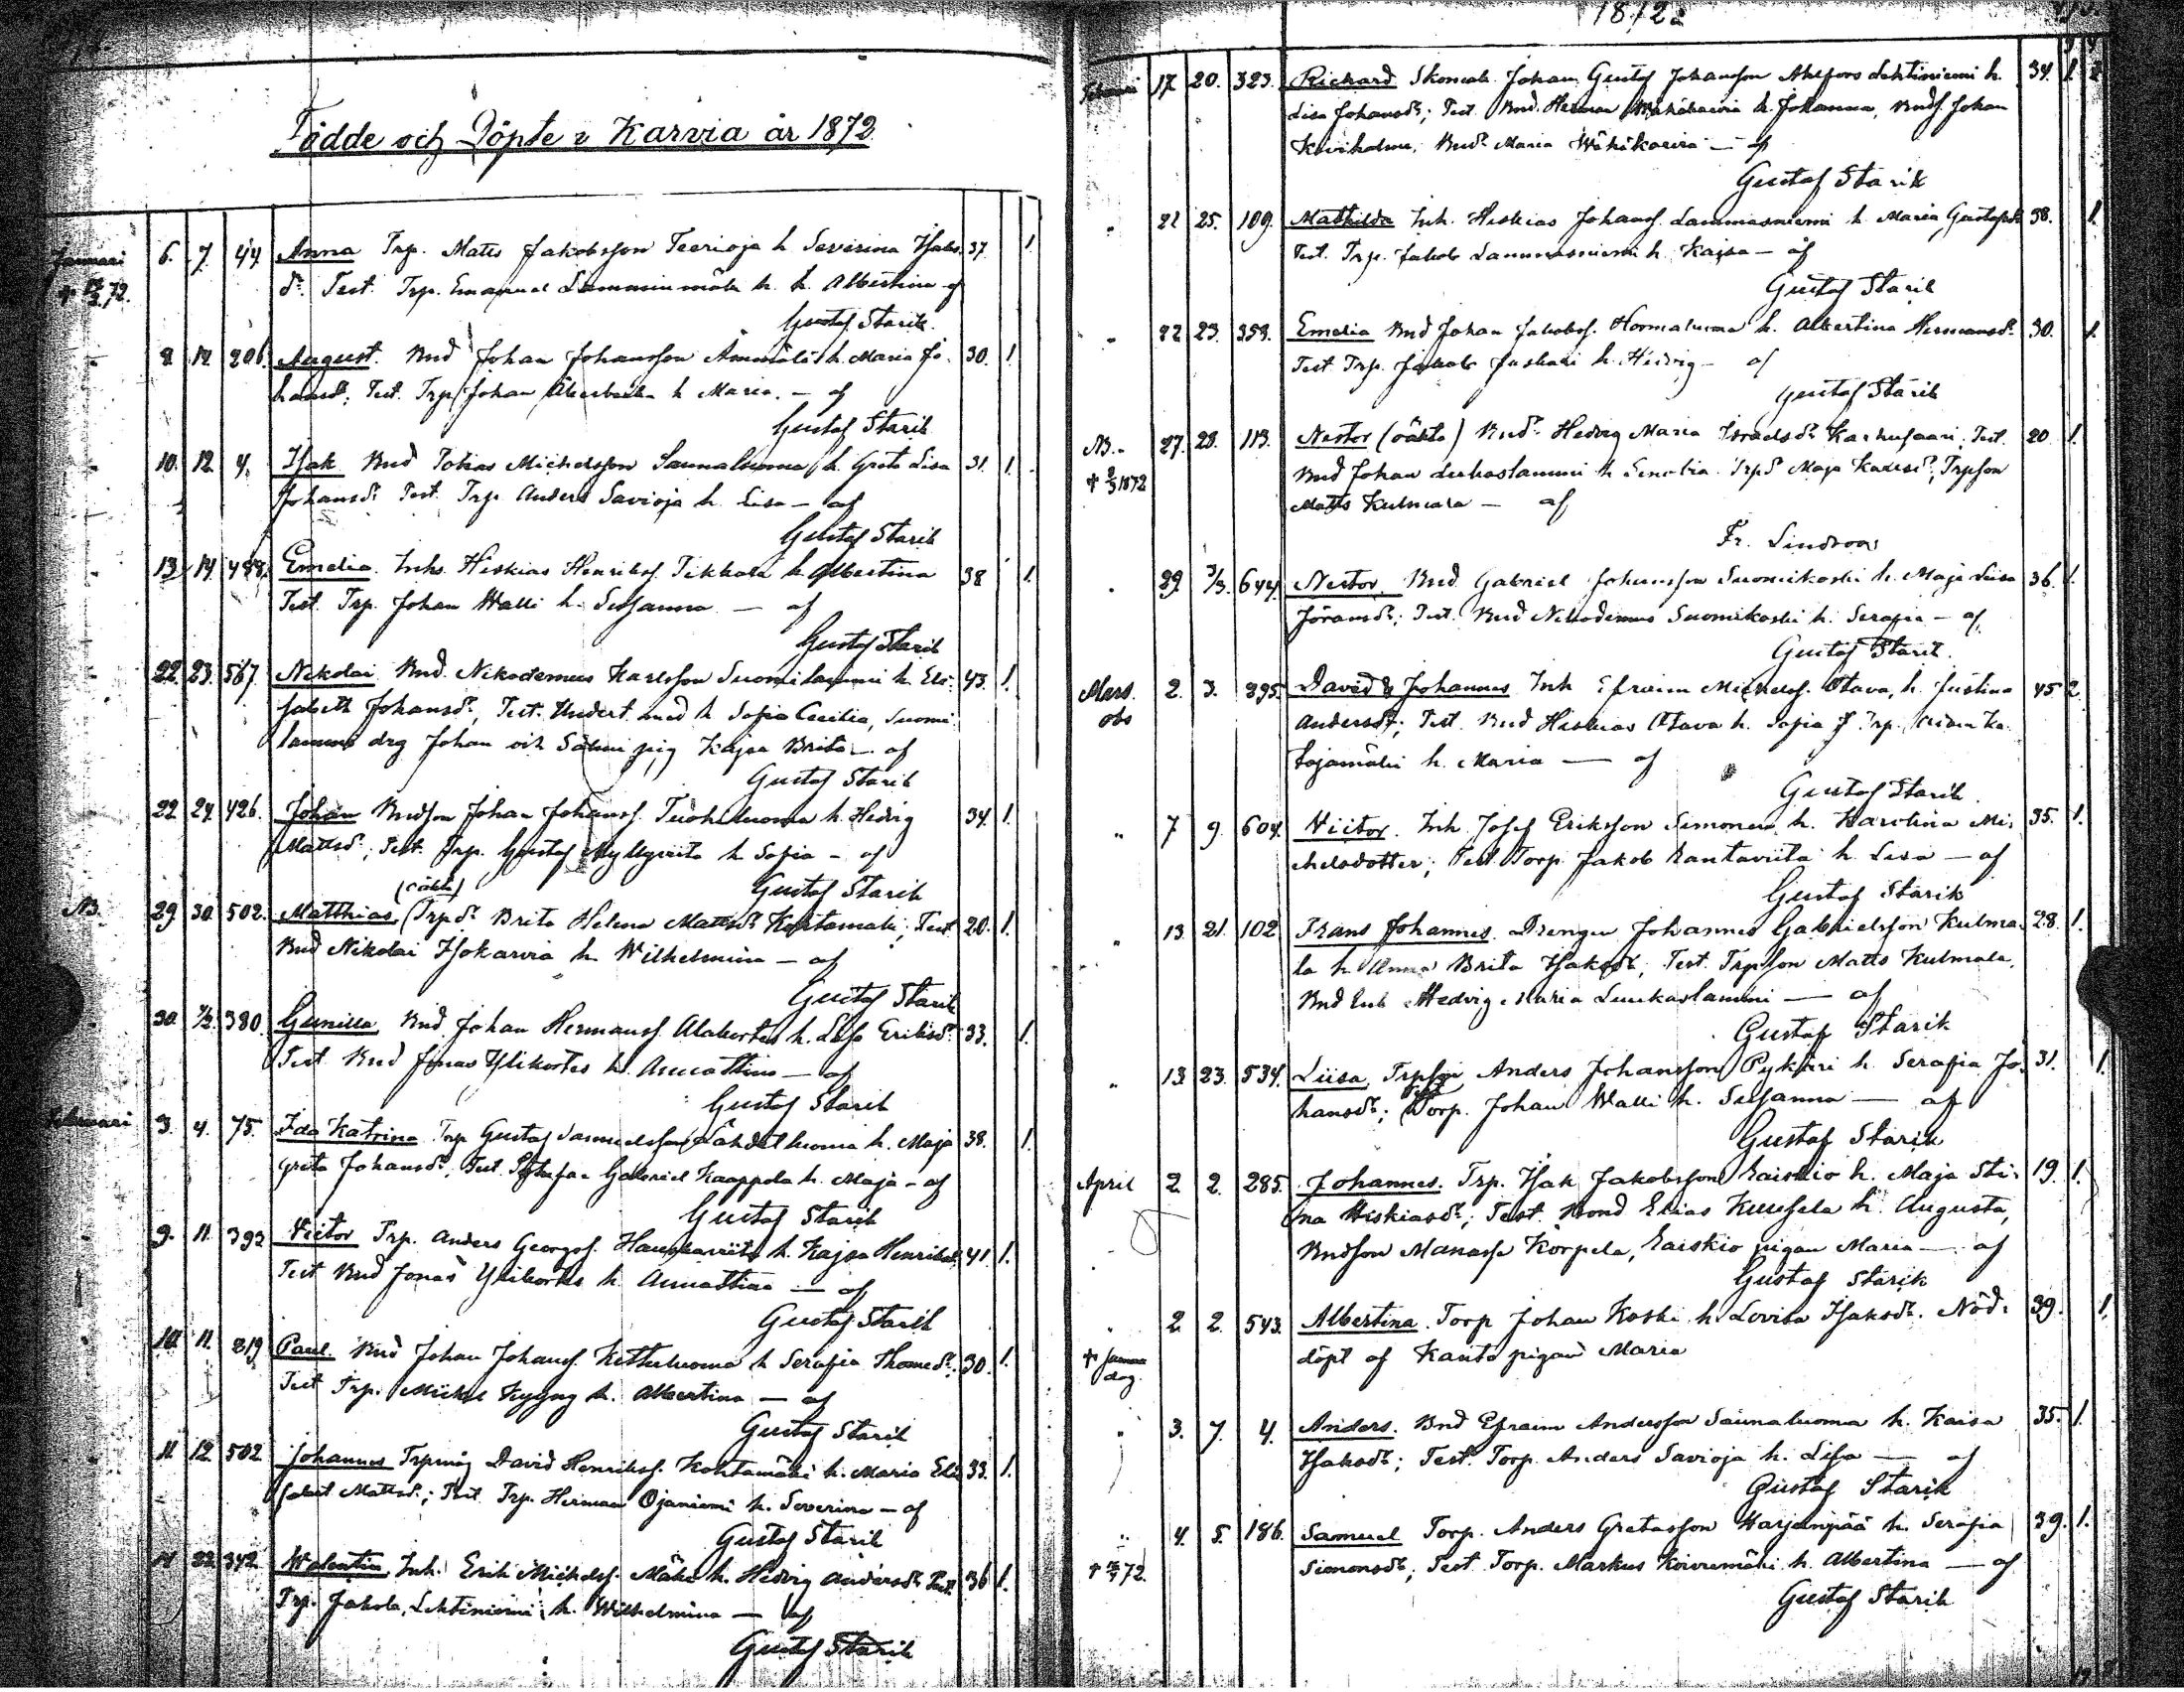 Födde och Döpte i Karvia år 1872.
Januari 6. 7. 44. Anna Trp. Matts Jakobsson Teerioja h. Severina Isaks- 37. 1.
dr. Test. Trp. Emanuel h. Albertina af
Gustaf Starik.
8 12 206. August. Bnd Johan Johansson Ammälä h. Maria Jo- 30. 1.
hansdr; Test. Trp. Johan h. Maria. — af
Gustaf Starik
10. 12 4. Isak Bnd Tobias Michelsson Saunaluoma h. Greta Lisa 31. 1.
Johansdr Test. Trp. Anders Savioja h. Lisa — af
Gustaf Starik
13 14 488. Emelia. Inh. Hiskias Henrikss. Tikkala h. Albertina 38 1.
Test. Trp. Johan Walli h. Susanna — af
Gustaf Starik
22. 23. 567. Nikolai Bnd. Nikodemus Karlsson Suomilammi h. Eli- 43. 1.
sabeth Johansdr, Test. Undert. med h. Sofia Cecilia, Suomi
lammi drg Johan och pig Kajsa Brita — af
Gustaf Starik
22 24 426. Johan Bndson Johan Johanss. Tuohiluoma h. Hedvig 34. 1.
Mattsdr; Test. Trp. Gustaf Myllyviita h. Sofia — af
Gustaf Starik
NB. 29 30. 502. Matthias (oäkta) Trpdr Brita Helena Mattsdr Kohtamäki; Test. 20. 1.
Bnd Nikolai Isokarvia h. Wilhelmina — af
Gustaf Starik
30. 1/2. 380. Gunilla Bnd Johan Hermanss. Alakortes h. Lisa Eriksdr 33. 1.
Test. Bnd Jonas Ylikortes h. Annastina — af
Gustaf Starik
Februari 3. 4. 75. Ida Katrina Trp Gustaf Samuelsson Lähdetluoma h. Maja 38. 1.
Greta Johansdr, Test. Gabriel Kaappola h. Maja — af
Gustaf Starik
9. 11. 393 Victor Trp. Anders Georgss. h. Kajsa Henriksdr 41 1.
Test Bnd Jonas Ylikortes h. Annastina — af
Gustaf Starik
10. 11. 219 Paul. Bnd Johan Johanss. Ketturluoma h. Serafia Thomedr. 30. 1.
Test Trp. Mickel Kyyny h. Albertina — af
Gustaf Starik
11. 12 502 Johannes Trpmåg David Henrikss. Kohtamäki h. Maria Eli- 33. 1.
sabet Mattsd.; Test. Trp. Herman Ojaniemi h. Severina — af
Gustaf Starik
14 22 342 Walentin, Inh. Erik Michelss. Mäki h. Hedvig Andersdr Test. 36 1.
Trp. Jakob Lehtiniemi h. Wilhelmina — af
Gustaf Starik
1872.
Februari 17 20. 323. Richard Skomak. Johan Gustaf Johansson Ahlfors Lehtiniemi h. 34. 1.
Lisa Johansdr; Test. Bnd. Herman Wähäkarvia h. Johanna, Bnds. Johan
Kiviholma, Bndr Maria Wähäkarvia — af
Gustaf Starik
" 22 25. 109. Mathilda Inh. Hiskias Johanss. Lammasniemi h. Maria Gustafsdr 38. 1.
Test. Trp. Jakob Lammasniemi h. Kajsa — af
Gustaf Starik
" 22 23. 358. Emelia Bnd Johan Jakobss. h. Albertina Hermansdr. 30. 1.
Test Trp. Jakob h. Hedvig — af
Gustaf Starik
NB. 27. 28. 113. Nestor (oäkta) Bndr Hedvig Maria Israelsdr Karhusaari; Test. 20 1.
† 2/3 1872 Bnd Johan Luukaslammi h. Senobia. Trpd. Maja Kaxisd., Trpson
Matts Kulmala — af
Fr. Lindroos
" 29. 3/3. 644. Nestor Bnd Gabriel Johansson Suomikoski h. Maja Lisa 36. 1.
Jöransdr; Test. Bnd Nikodemus Suomikoski h. Serafia — af
Gustaf Starik.
Mars. 2. 3. 295. David & Johannes Inh Efraim Michelss. Otava, h. Justina 45 2.
obs Andersdr; Test. Bnd Hiskias Otava h. Sofia & Trp. Ka-
tajamäki h. Maria — af
Gustaf Starik.
" 7 9. 604. Victor. Inh. Josef Eriksson Simonen h. Karolina Mi- 35. 1.
chelsdotter; Test. Torp. Jakob Rantaviita h. Lisa — af
Gustaf Starik
" 13. 21. 102 Frans Johannes. Drengen Johannes Gabrielsson Kulma- 28. 1.
la h. Anna Brita Isaksdr; Test. Trpson Matts Kulmala,
Bnd Enk Hedvig Maria Luukaslammi — af
Gustaf Starik
" 13. 23. 534. Liisa, Trpson Anders Johansson Pykäri h. Serafia Jo- 31. 1.
hansdr; Test Torp. Johan Walli h. Susanna — af
Gustaf Starik
April 2. 2. 285. Johannes. Trp. Isak Jakobsson Raiskio h. Maja Sti- 19. 1.
na Hiskiasdr; Test. Bond Elias Kuusela h. Augusta,
Bndson Manasse Korpela, Raiskio pigan Maria — af
Gustaf Starik
" 2. 2. 543. Albertina. Torp Johan Koski h. Lovisa Isaksdr. Nöd- 39. 1.
† samma dag. döpt af Kanto pigan Maria
" 3. 7. 4. Anders. Bnd Efraim Andersson Saunaluoma h. Kaisa 35. 1.
Isaksdr; Test. Torp. Anders Savioja h. Lisa — af
Gustaf Starik
" 4. 5. 186. Samuel Torp. Anders Gretasson Harjanpää h. Serafia 39. 1.
Simonsdr, Test Torp. Markus Koivumäki h. Albertina — af
Gustaf Starik